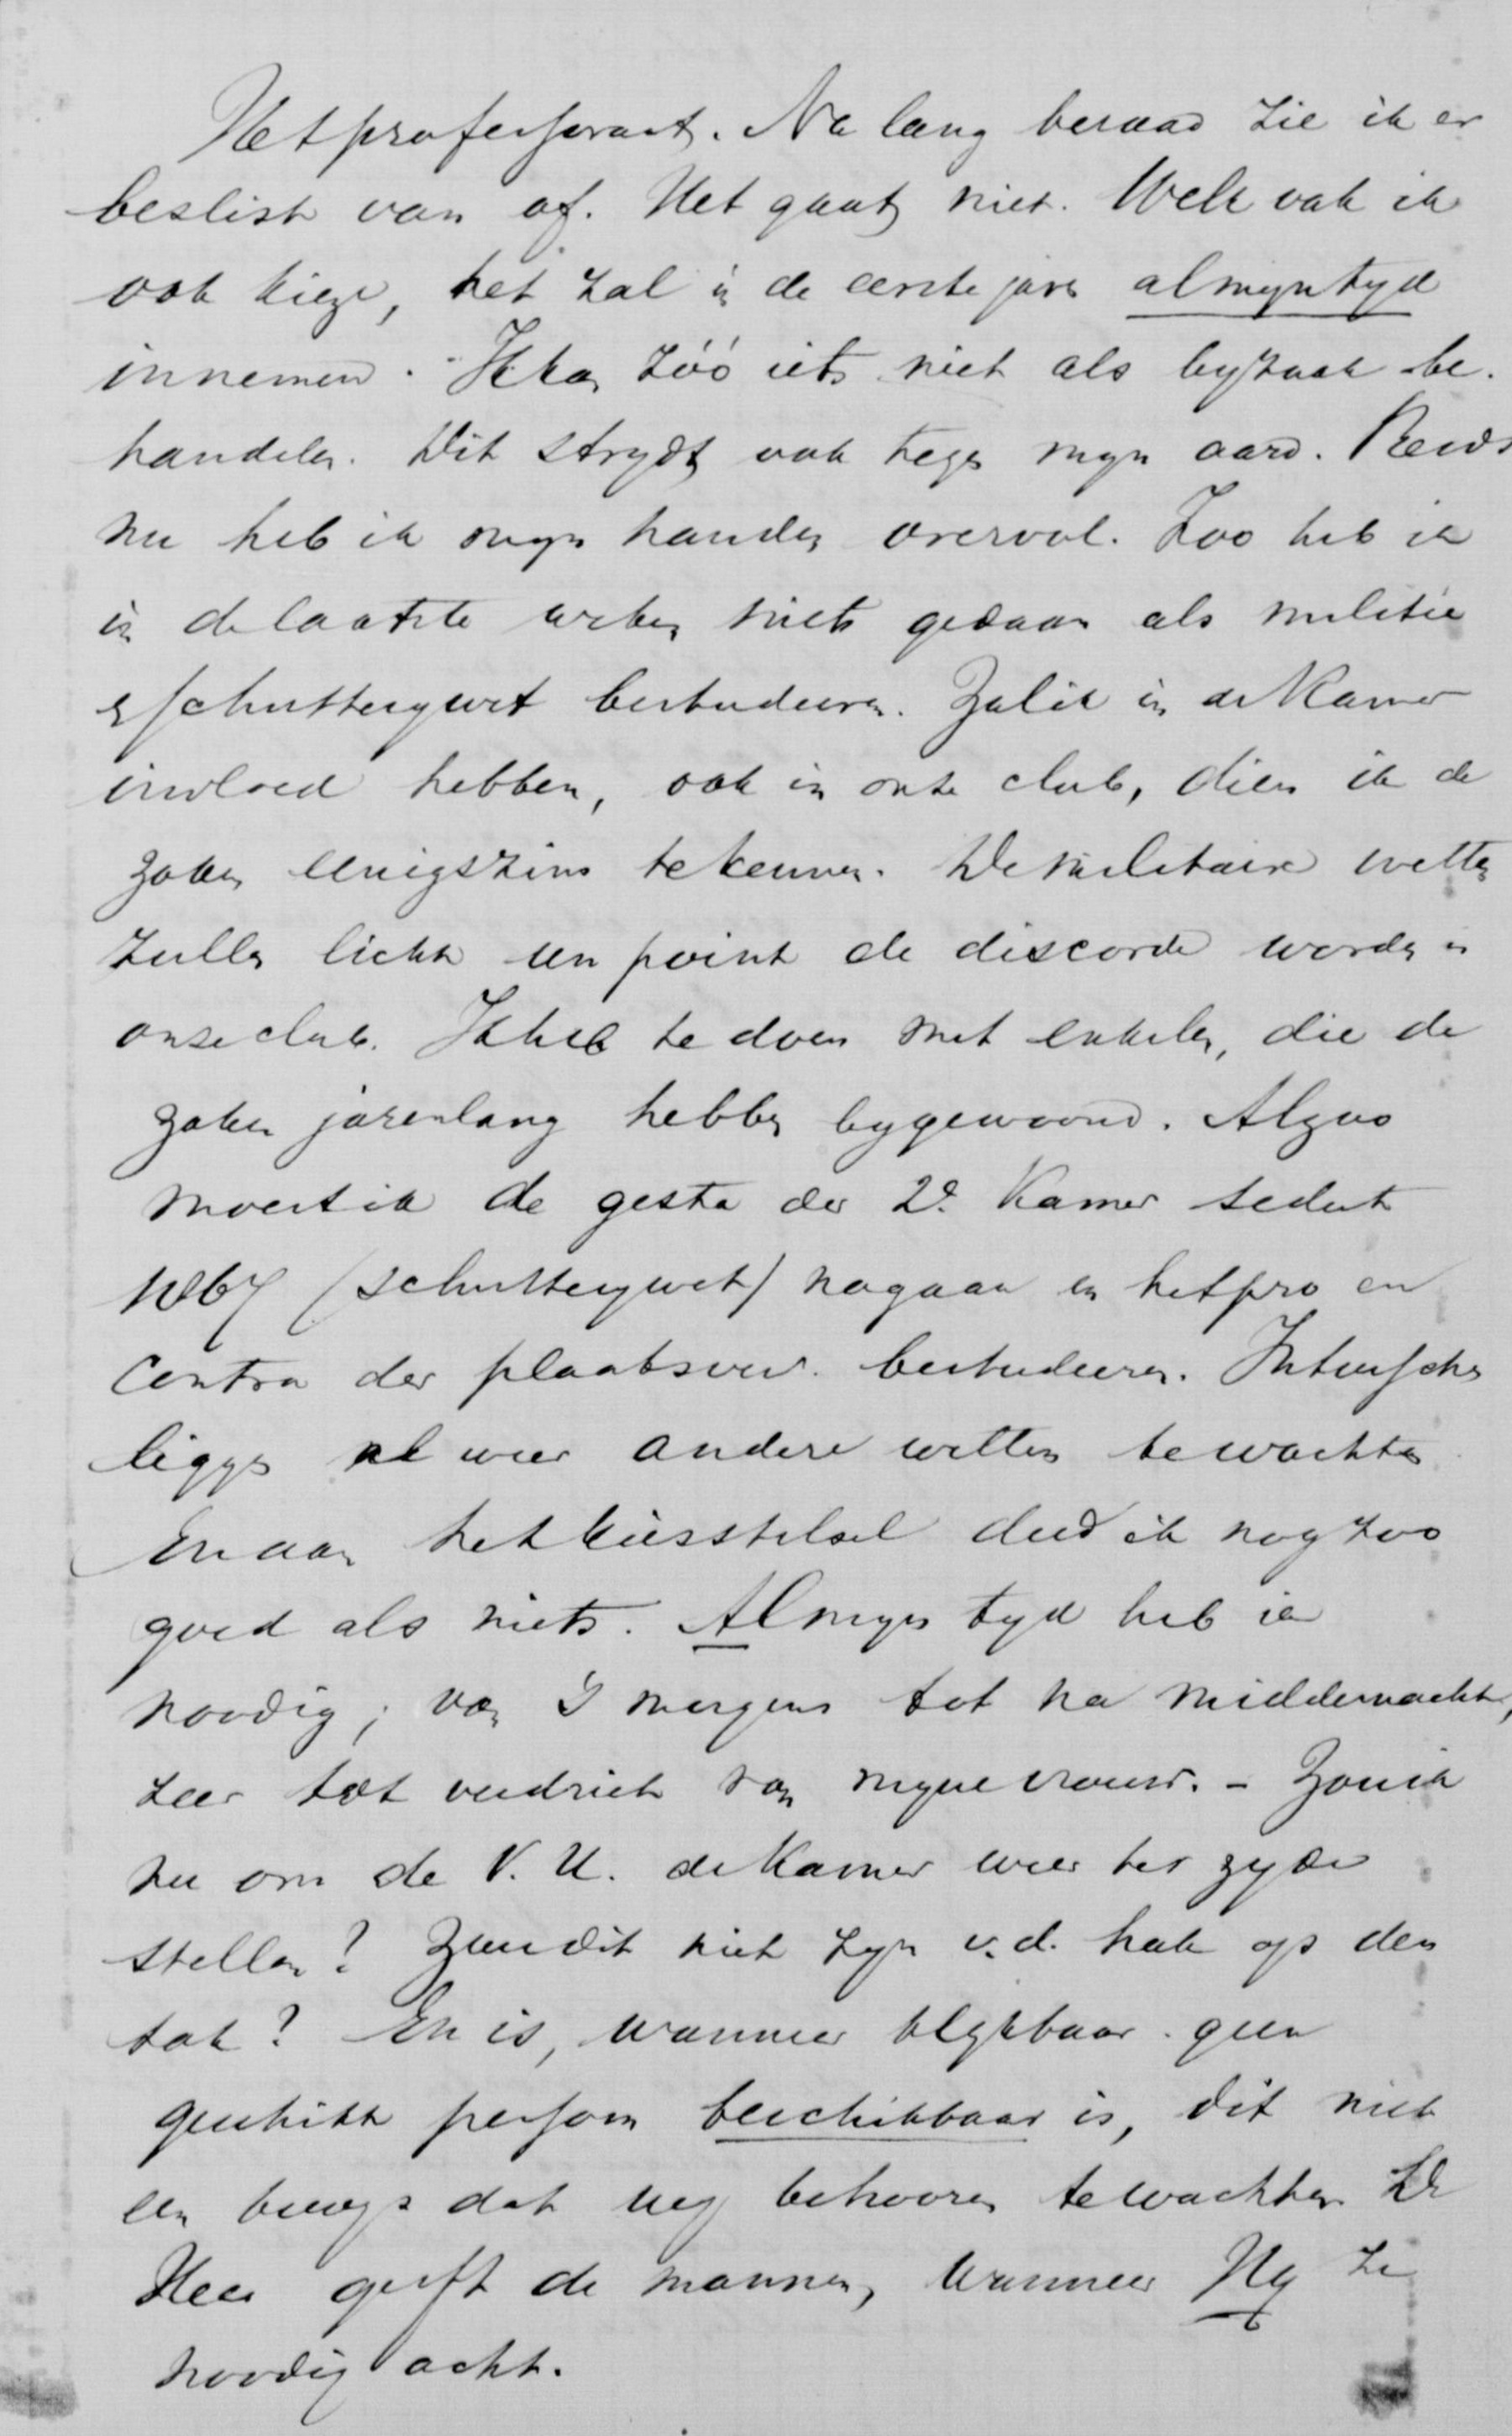 Het professoraat. Na lang beraad zie ik er
beslist van af. Het gaat niet. Welk vak ik
ook kieze, het zal in de eerste jaren al mijn tijd
innemen. Ik kan zóó iets niet als bijzaak be-
handelen. Dit strijdt ook tegen mijn aard. Reeds
nu heb ik mijn handen overvol. Zoo heb ik
in de laatste weken niets gedaan als militie
en schutterijwet bestudeeren. Zal ik in de Kamer
invloed hebben, ook in onze club, dien ik de
zaken eenigszins te kennen. De militaire wetten
zullen licht een point de discorde worden in
onze club. Ik heb te doen met enkelen, die de
zaken jarenlang hebben bijgewoond. Alzoo
moest ik de gesta der 2e Kamer sedert
1867 (schutterijwet) nagaan en het pro en
contra der plaatsverv. bestudeeren. Intusschen
liggen al weer andere wetten te wachten
En aan het kiesstelsel deed ik nog zoo
goed als niets. Al mijn tijd heb ik
noodig; van 's morgens tot na middernacht,
zeer tot verdriet van mijne vrouw. - Zou ik
nu om de V. U. de Kamer weer ter zijde
stellen? Zou dit niet zijn v. d. hak op den
tak? En is, wanneer blijkbaar geen
geschikt persoon beschikbaar is, dit niet
een bewijs dat wij behooren te wachten De
Heer geeft de mannen, wanneer Hij ze
noodig acht.